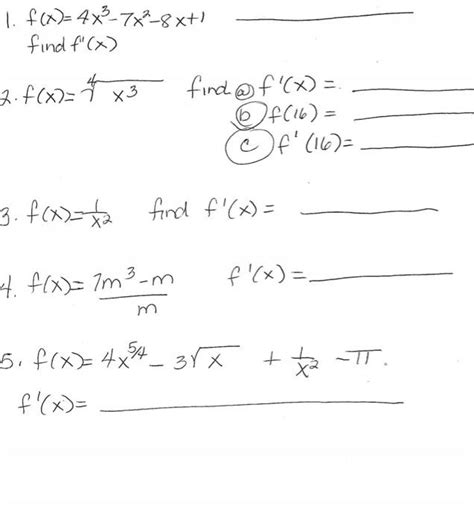 1. f(x)= 4x³-7x²-8x+1 ________
find f'(x)
2. f(x)= ∜x³ find ⓐ f'(x) = ________
ⓑ f(16) = ________
ⓒ f'(16)= ________
3. f(x)=1/x² find f'(x) = ________
4. f(x)= 7m³-m/m f'(x) = ________
5. f(x)= 4x^5/4 - 3√x + 1/x² - π.
f'(x)= ________